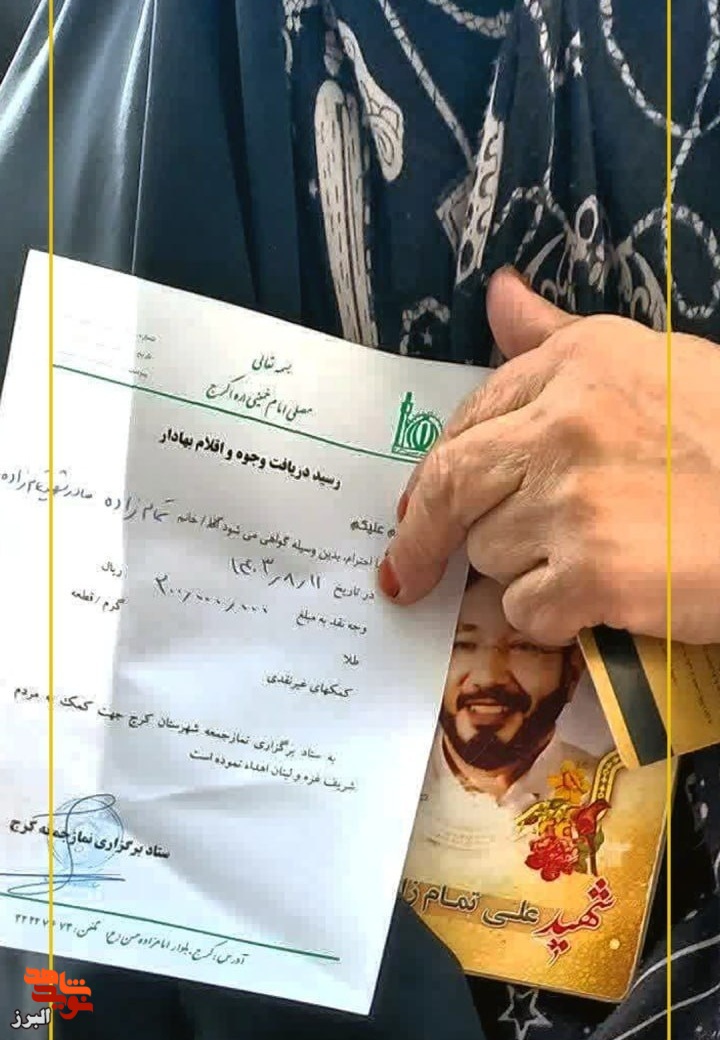 بسمه تعالی
مصلی امام خمینی (ره) کرج
شماره
تاریخ
رسید دریافت وجوه و اقلام بهادار
م علیکم
با احترام، بدین وسیله گواهی می شود آقا/خانم تمام زاده مادر شهید تمام زاده
در تاریخ ۱۴۰۳٫۸٫۱۱
وجه نقد به مبلغ ۲۰۰٫۰۰۰٫۰۰۰ ریال
طلا گرم / قطعه
کمکهای غیرنقدی
به ستاد برگزاری نمازجمعه شهرستان کرج جهت کمک به مردم
شریف غزه و لبنان اهداء نموده است
ستاد برگزاری نمازجمعه کرج
آدرس: کرج، بلوار امامزاده حسن (ع) تلفن:
شهید علی تمام زا
نوید شاهد
البرز